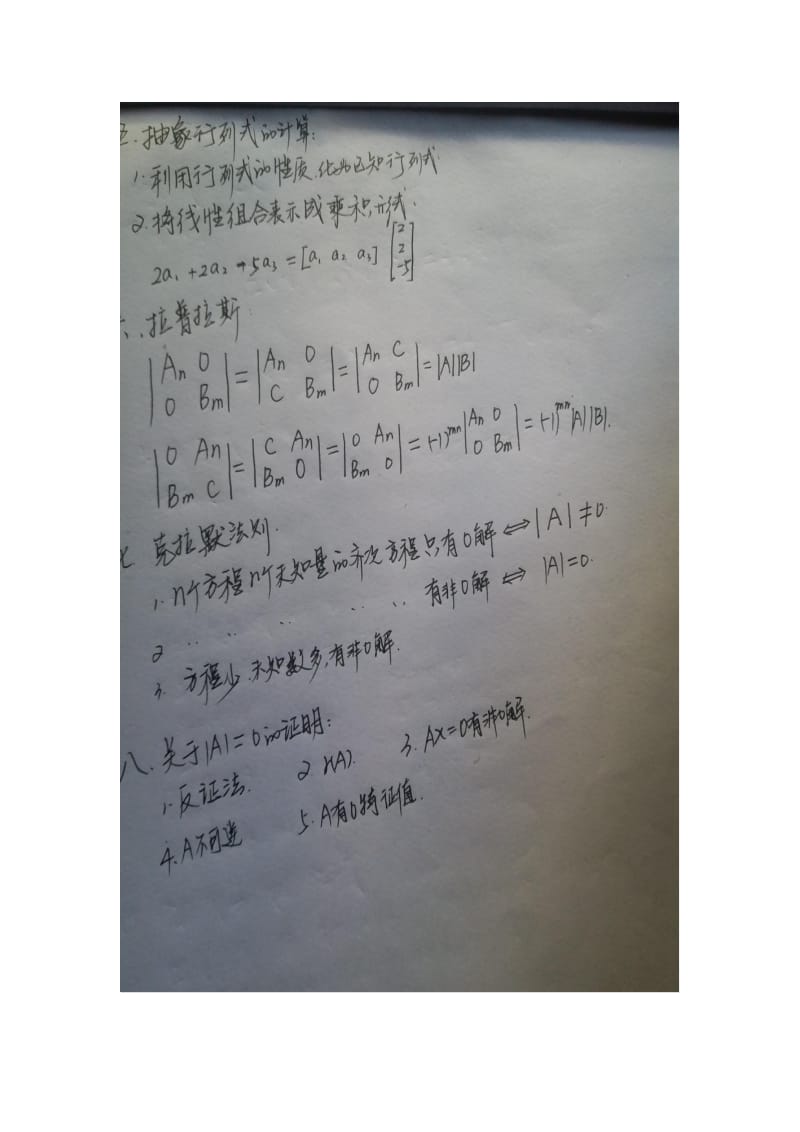 五.抽象行列式的计算:
1.利用行列式的性质,化为已知行列式
2.将线性组合表示成乘积形式.
2a₁+2a₂-5a₃=[a₁ a₂ a₃] [2 2 -5]
六.拉普拉斯
|Aₙ 0; 0 Bₘ| = |Aₙ 0; C Bₘ| = |Aₙ C; 0 Bₘ| = |A||B|
|0 Aₙ; Bₘ C| = |C Aₙ; Bₘ 0| = |0 Aₙ; Bₘ 0| = (-1)ᵐⁿ |Aₙ 0; 0 Bₘ| = (-1)ᵐⁿ|A||B|.
七 克拉默法则.
1. n个方程n个未知量的齐次方程只有0解 ⇔ |A|≠0.
2 〃 〃 〃 〃 有非0解 ⇔ |A|=0.
3. 方程少.未知数多,有非0解.
八.关于|A|=0的证明:
1.反证法. 2 r(A). 3. AX=0有非0解.
4.A不可逆 5.A有0特征值.